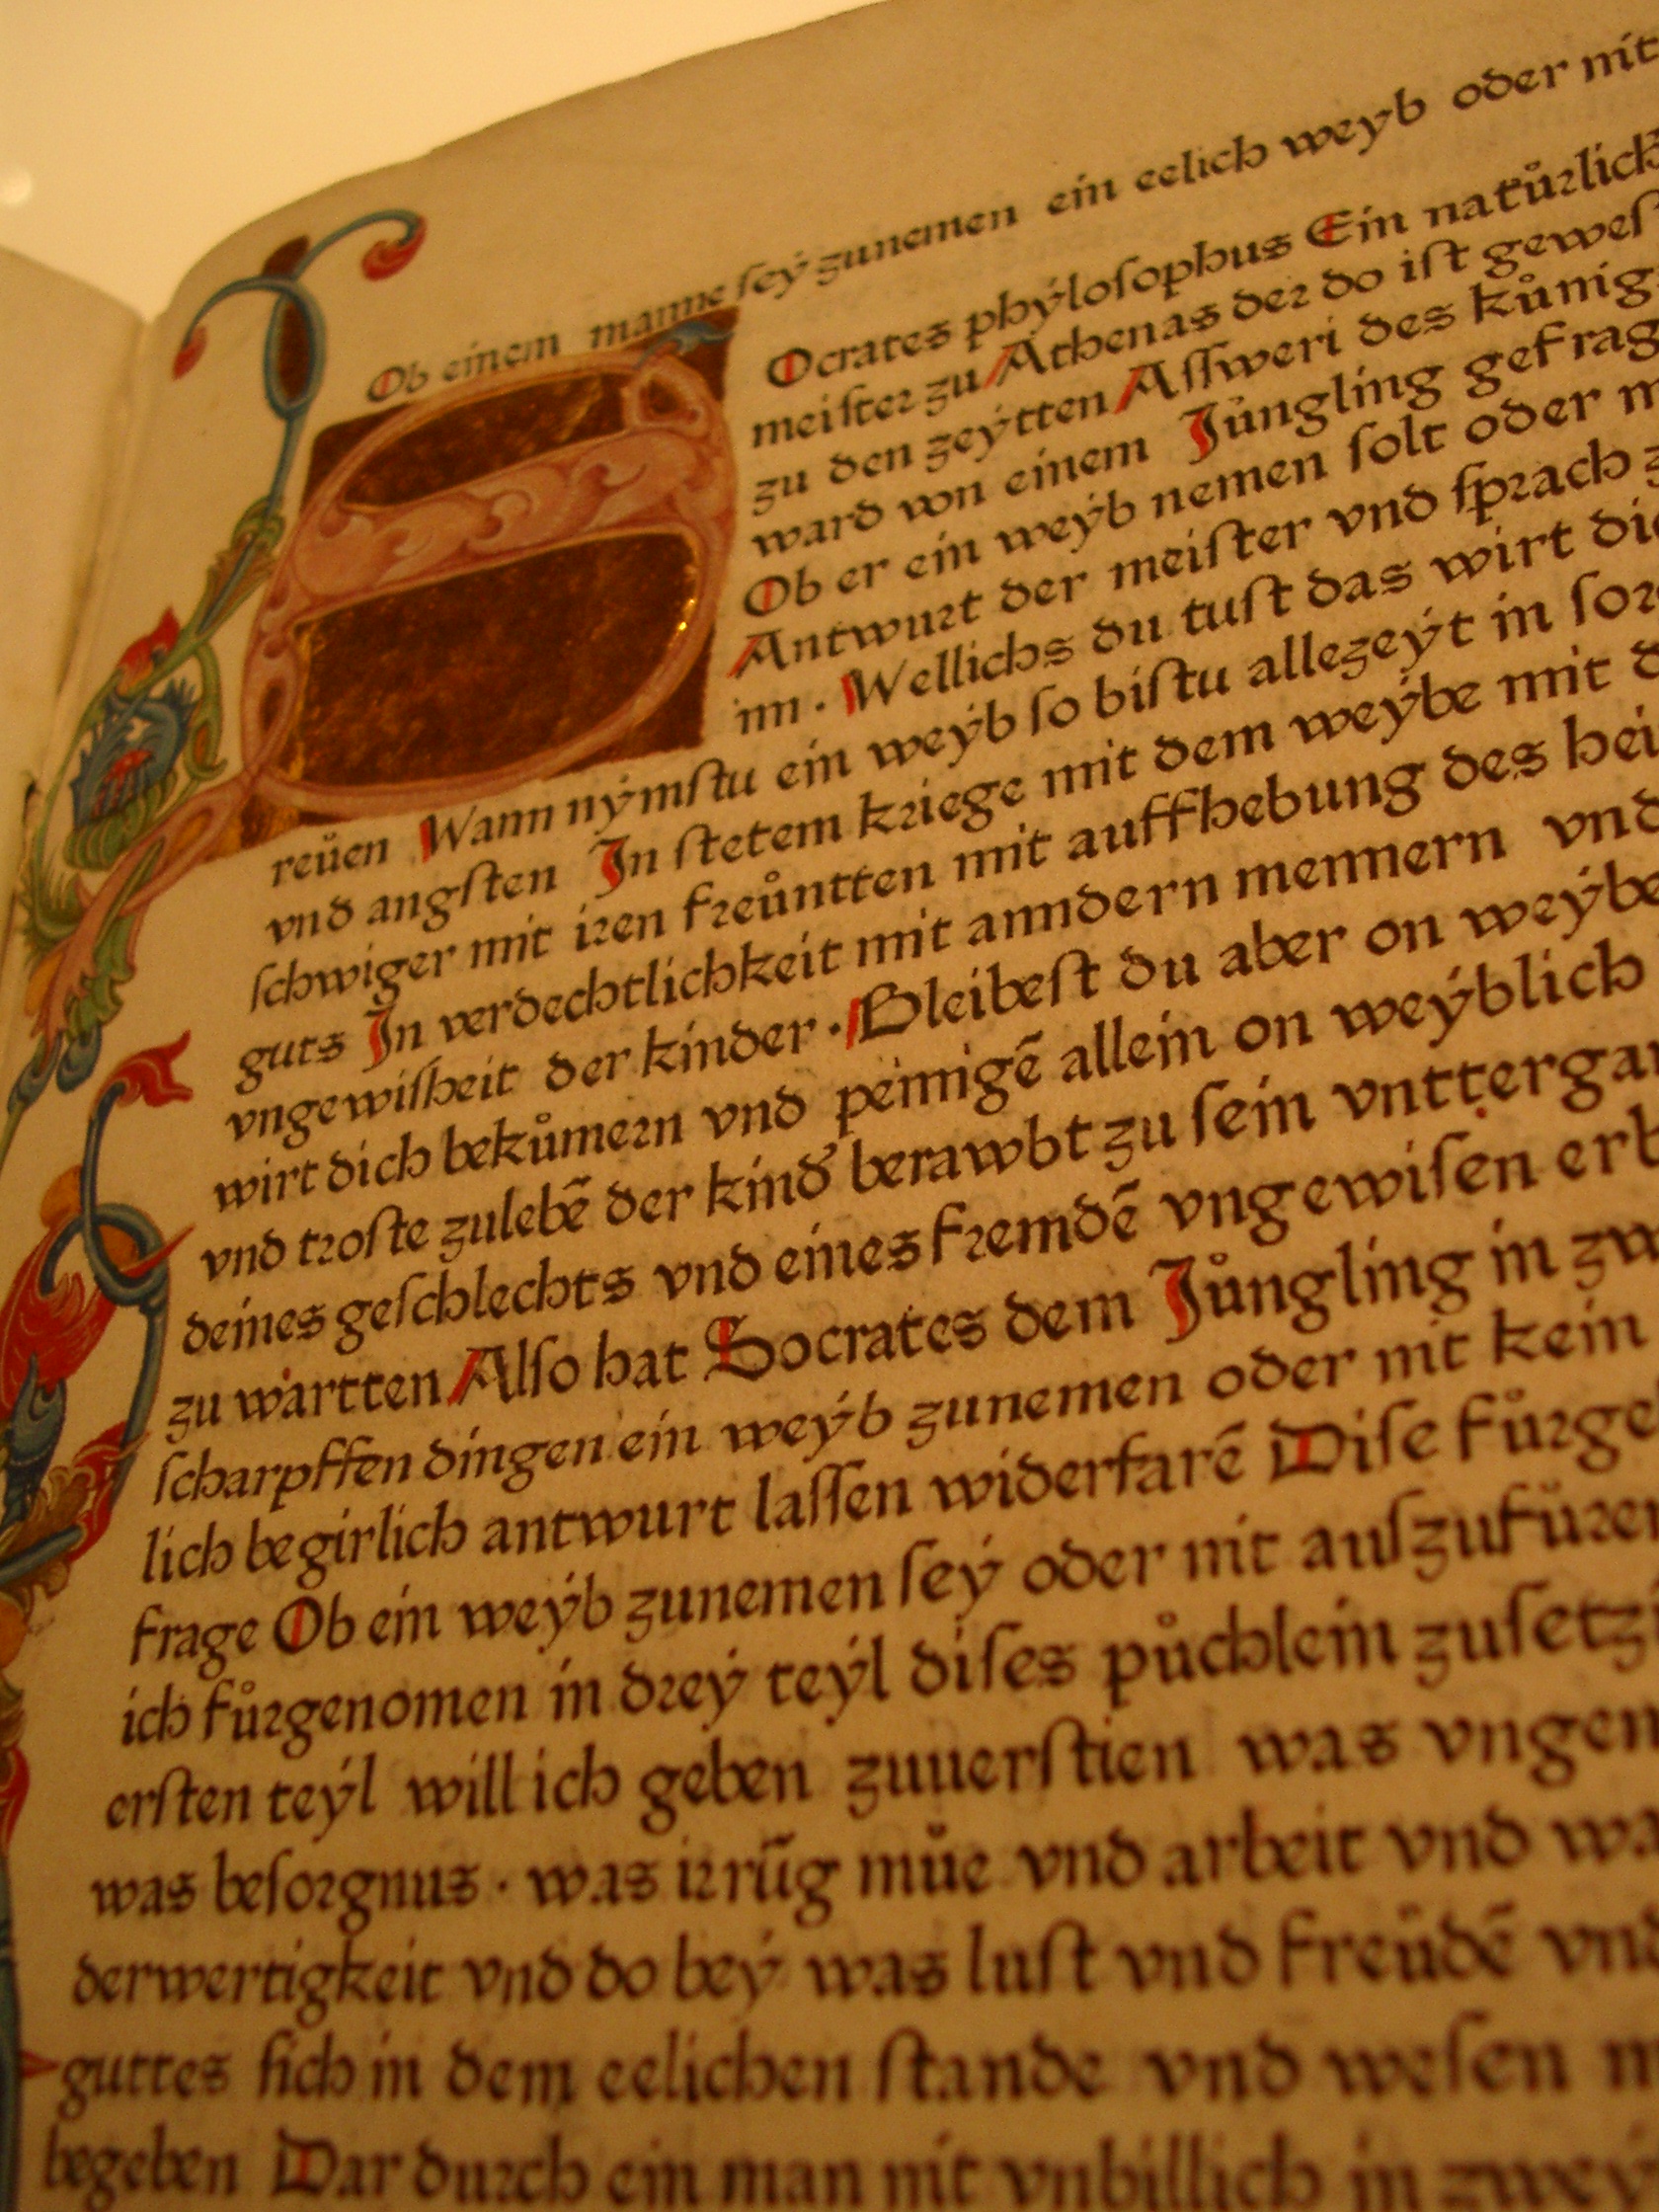 Ob einem manne ſeÿ zunemen ein eelich weyb oder nit
SOcrates phÿloſophus Ein natůrlich
meiſter zu Athenas der do iſt geweſ
zu den zeÿtten Aſſweri des kůnig
ward von einem Jůngling gefrag
Ob er ein weÿb nemen ſolt oder
Antwurt der meiſter vnd ſprach
im · Wellichs du tuſt das wirt
reůen Wann nÿmſtu ein weÿb ſo biſtu allezeÿt in ſor
vnd angſten Jn ſtetem kriege mit dem weÿbe mit
ſchwiger mit iren freůntten mit auffhebung des hei
guts Jn verdechtlichkeit mit anndern mennern vnd
vngewiſheit der kinder · Bleibeſt du aber on weÿbe
wirt dich bekůmern vnd peinigē allein on weÿblich
vnd troſte zulebē der kind' berawbt zu ſein vnttergan
deines geſchlechts vnd eines fremdē vngewiſen erb
zu wartten Alſo hat Socrates dem Jůngling in zw
ſcharpffen dingen ein weÿb zunemen oder nit kein
lich begirlich antwurt laſſen widerfarē Diſe fůrge
frage Ob ein weÿb zunemen ſeÿ oder nit auſzufůren
ich fůrgenomen in dreÿ teÿl diſes půchlein zuſetz
erſten teÿl will ich geben zuuerſtien was vngem
was beſorgnus · was irrūg můe vnd arbeit vnd wa
derwertigkeit vnd do beÿ was luſt vnd freůdē vnd
guttes ſich in dem eelichen ſtande vnd weſen
begeben Dar durch ein man nit vnbillich in zweÿ